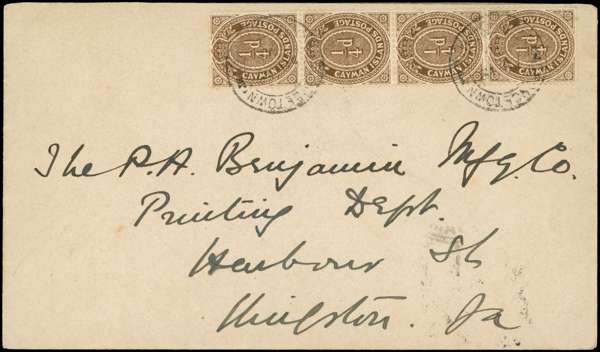 CAYMAN ISLANDS POSTAGE CAYMAN ISLANDS POSTAGE CAYMAN ISLANDS POSTAGE CAYMAN ISLANDS POSTAGE
The P. A. Benjamin Mfg. Co.
Printing Dept.
Harbour St
Kingston. Ja